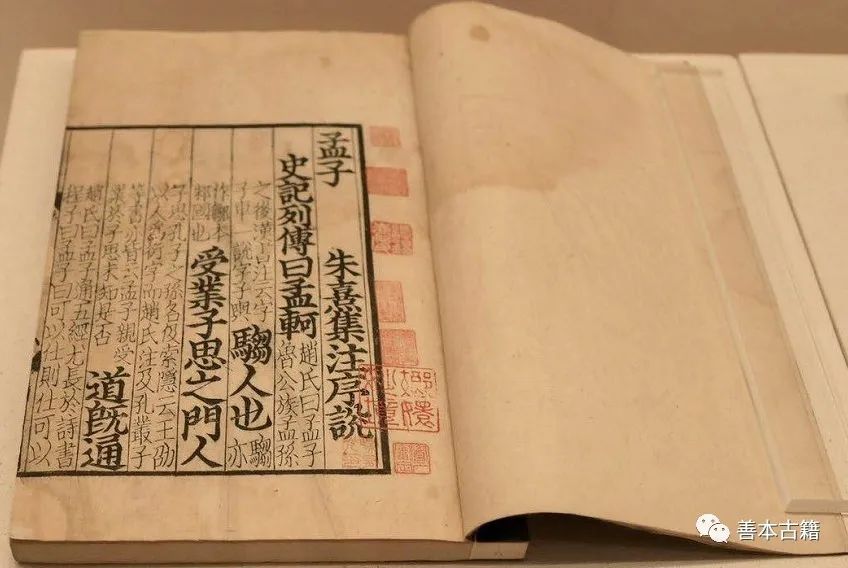 孟子 朱熹集注序說
史記列傳曰孟軻 趙氏曰孟子 魯公族孟孫
之後漢書注云字 子車一說字子輿 騶人也 騶亦
作鄒本 邾國也 受業子思之門人
子思孔子之孫名伋索隱云王劭
以人為衍字而趙氏注及孔叢子
等書亦皆云孟子親受 業於子思未知是否 道旣通
趙氏曰孟子通五經尤長於詩書
程子曰孟子曰可以仕則仕可以
善本古籍